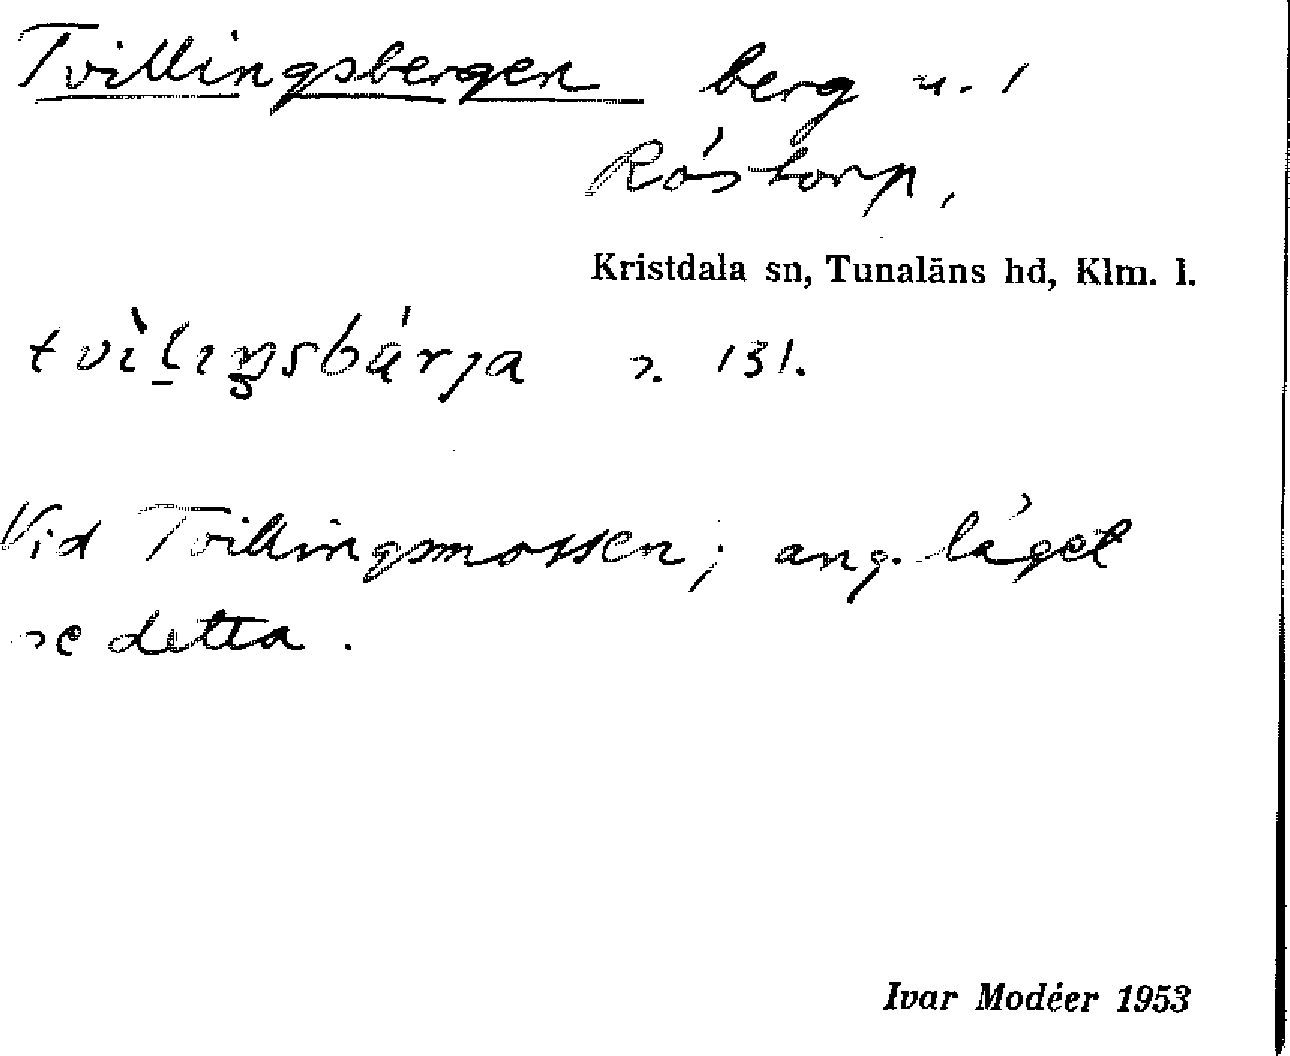 Tvillingsbergen berg u. /
Röstorp.
Kristdala sn, Tunaläns hd, Klm. l.
tvìlıŋsbárja s. 131.
Vid Tvillingmossen; ang. läget
se detta.
Ivar Modéer 1953